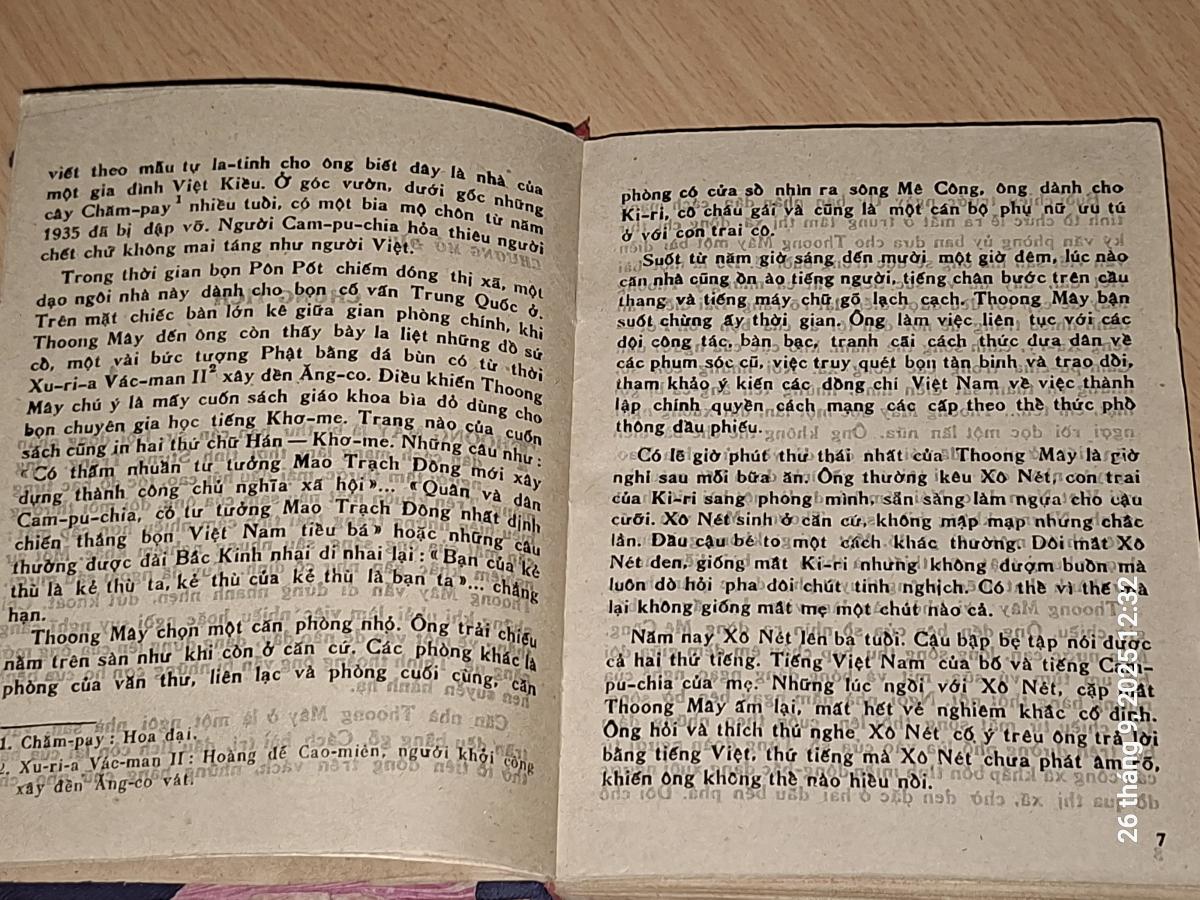 viết theo mẫu tự la-tinh cho ông biết đây là nhà của
một gia đình Việt Kiều. Ở góc vườn, dưới gốc những
cây Chăm-pay ¹ nhiều tuổi, có một bia mộ chôn từ năm
1935 đã bị đập vỡ. Người Cam-pu-chia hỏa thiêu người
chết chứ không mai táng như người Việt.
Trong thời gian bọn Pôn Pốt chiếm đóng thị xã, một
dạo ngôi nhà này dành cho bọn cố vấn Trung Quốc ở.
Trên mặt chiếc bàn lớn kê giữa gian phòng chính, khi
Thoong Mây đến ông còn thấy bày la liệt những đồ sứ
cổ, một vài bức tượng Phật bằng đá bùn có từ thời
Xu-ri-a Vác-man II² xây đền Ăng-co. Điều khiến Thoong
Mây chú ý là mấy cuốn sách giáo khoa bìa đỏ dùng cho
bọn chuyên gia học tiếng Khơ-me. Trang nào của cuốn
sách cũng in hai thứ chữ Hán — Khơ-me. Những câu như :
« Có thấm nhuần tư tưởng Mao Trạch Đông mới xây
dựng thành công chủ nghĩa xã hội »... « Quân và dân
Cam-pu-chia, có tư tưởng Mao Trạch Đông nhất định
chiến thắng bọn Việt Nam tiểu bá » hoặc những câu
thường được đài Bắc Kinh nhai đi nhai lại : « Bạn của kẻ
thù là kẻ thù ta, kẻ thù của kẻ thù là bạn ta »... chẳng
hạn.
Thoong Mây chọn một căn phòng nhỏ. Ông trải chiếu
nằm trên sàn như khi còn ở căn cứ. Các phòng khác là
phòng của văn thư, liên lạc và phòng cuối cùng, căn
1. Chăm-pay : Hoa đại.
2. Xu-ri-a Vác-man II : Hoàng đế Cao-miên, người khởi công
xây đền Ăng-co vát.
phòng có cửa sổ nhìn ra sông Mê Công, ông dành cho
Ki-ri, cô cháu gái và cũng là một cán bộ phụ nữ ưu tú
ở với con trai cô.
Suốt từ năm giờ sáng đến mười một giờ đêm, lúc nào
căn nhà cũng ồn ào tiếng người, tiếng chân bước trên cầu
thang và tiếng máy chữ gõ lạch cạch. Thoong Mây bận
suốt chừng ấy thời gian. Ông làm việc liên tục với các
đội công tác, bàn bạc, tranh cãi cách thức đưa dân về
các phum sóc cũ, việc truy quét bọn tàn binh và trao đổi,
tham khảo ý kiến các đồng chí Việt Nam về việc thành
lập chính quyền cách mạng các cấp theo thể thức phổ
thông đầu phiếu.
Có lẽ giờ phút thư thái nhất của Thoong Mây là giờ
nghỉ sau mỗi bữa ăn. Ông thường kêu Xô Nét, con trai
của Ki-ri sang phòng mình, sẵn sàng làm ngựa cho cậu
cưỡi. Xô Nét sinh ở căn cứ, không mập mạp nhưng chắc
lẳn. Đầu cậu bé to một cách khác thường. Đôi mắt Xô
Nét đen, giống mắt Ki-ri nhưng không đượm buồn mà
luôn dò hỏi pha đôi chút tinh nghịch. Có thể vì thế mà
lại không giống mắt mẹ một chút nào cả.
Năm nay Xô Nét lên ba tuổi. Cậu bập bẹ tập nói được
cả hai thứ tiếng. Tiếng Việt Nam của bố và tiếng Cam-
pu-chia của mẹ. Những lúc ngồi với Xô Nét, cặp mắt
Thoong Mây ấm lại, mất hết vẻ nghiêm khắc cố định.
Ông hỏi và thích thú nghe Xô Nét cố ý trêu ông trả lời
bằng tiếng Việt, thứ tiếng mà Xô Nét chưa phát âm rõ,
khiến ông không thể nào hiểu nổi.
7
26 tháng 9, 2025 12:32